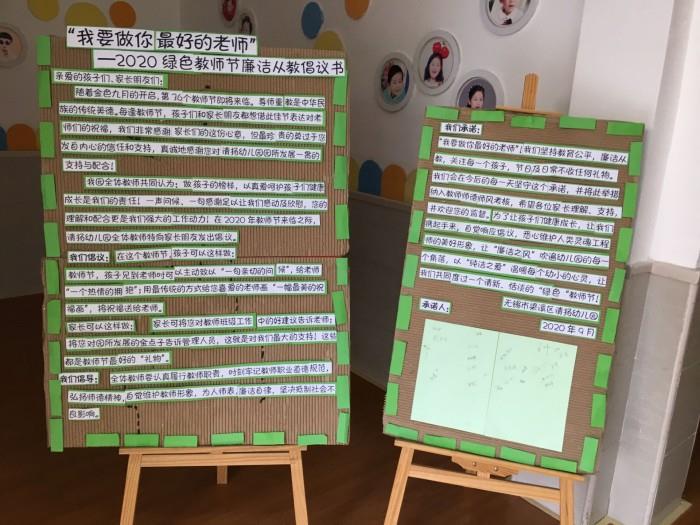 “我要做你最好的老师”
—2020 绿色教师节廉洁从教倡议书
亲爱的孩子们、家长朋友们:
随着金色九月的开启,第36个教师节即将来临。尊师重教是中华民
族的传统美德。每逢教师节,孩子们和家长朋友都想借此佳节表达对老
师们的祝福,我们非常感谢家长们的这份心意,但最珍贵的莫过于您
发自内心的信任和支持,真诚地感谢您对清扬幼儿园园所发展一贯的
支持与配合!
我园全体教师共同认为:做孩子的榜样,以真爱呵护孩子们健康
成长是我们的责任!一声问候,一句感谢足以让我们感动及欣慰,您的
理解和配合更是我们强大的工作动力!在2020年教师节来临之际,
清扬幼儿园全体教师特向家长朋友发出倡议。
我们倡议:在这个教师节,孩子可以这样做:
教师节,孩子见到老师时可以主动致以“一句亲切的问候”,给老师
“一个热情的拥抱”;用最传统的方式给您喜爱的老师画“一幅最美的祝
福画”,将祝福送给老师。
家长可以这样做:家长可将您对教师班级工作中的好建议告诉老师;
将您对园所发展的金点子告诉管理人员,这就是对我们最大的支持!这些
都是教师节最好的“礼物”。
我们倡导:全体教师要认真履行教师职责,时刻牢记教师职业道德规范,
弘扬师德精神,自觉维护教师形象,为人师表,廉洁自律,坚决抵制社会不
良影响。
我们承诺:
“我要做你最好的老师”!我们坚持教育公平,廉洁从
教,关注每一个孩子,节日及日常不收任何礼物。
我们会在今后的每一天坚守这个承诺,并将此举措
纳入教师师德师风考核,希望各位家长理解、支持,
并欢迎您的监督。为了让孩子们健康成长,让我们
携起手来,自觉响应倡议,悉心维护人类灵魂工程
师的美好形象,让“廉洁之风”吹遍幼儿园的每一
个角落,以“纯洁之爱”温暖每个幼小的心灵,让
我们共同度过一个清新、恬淡的“绿色”教师节!
无锡市梁溪区清扬幼儿园
2020年9月
承诺人: